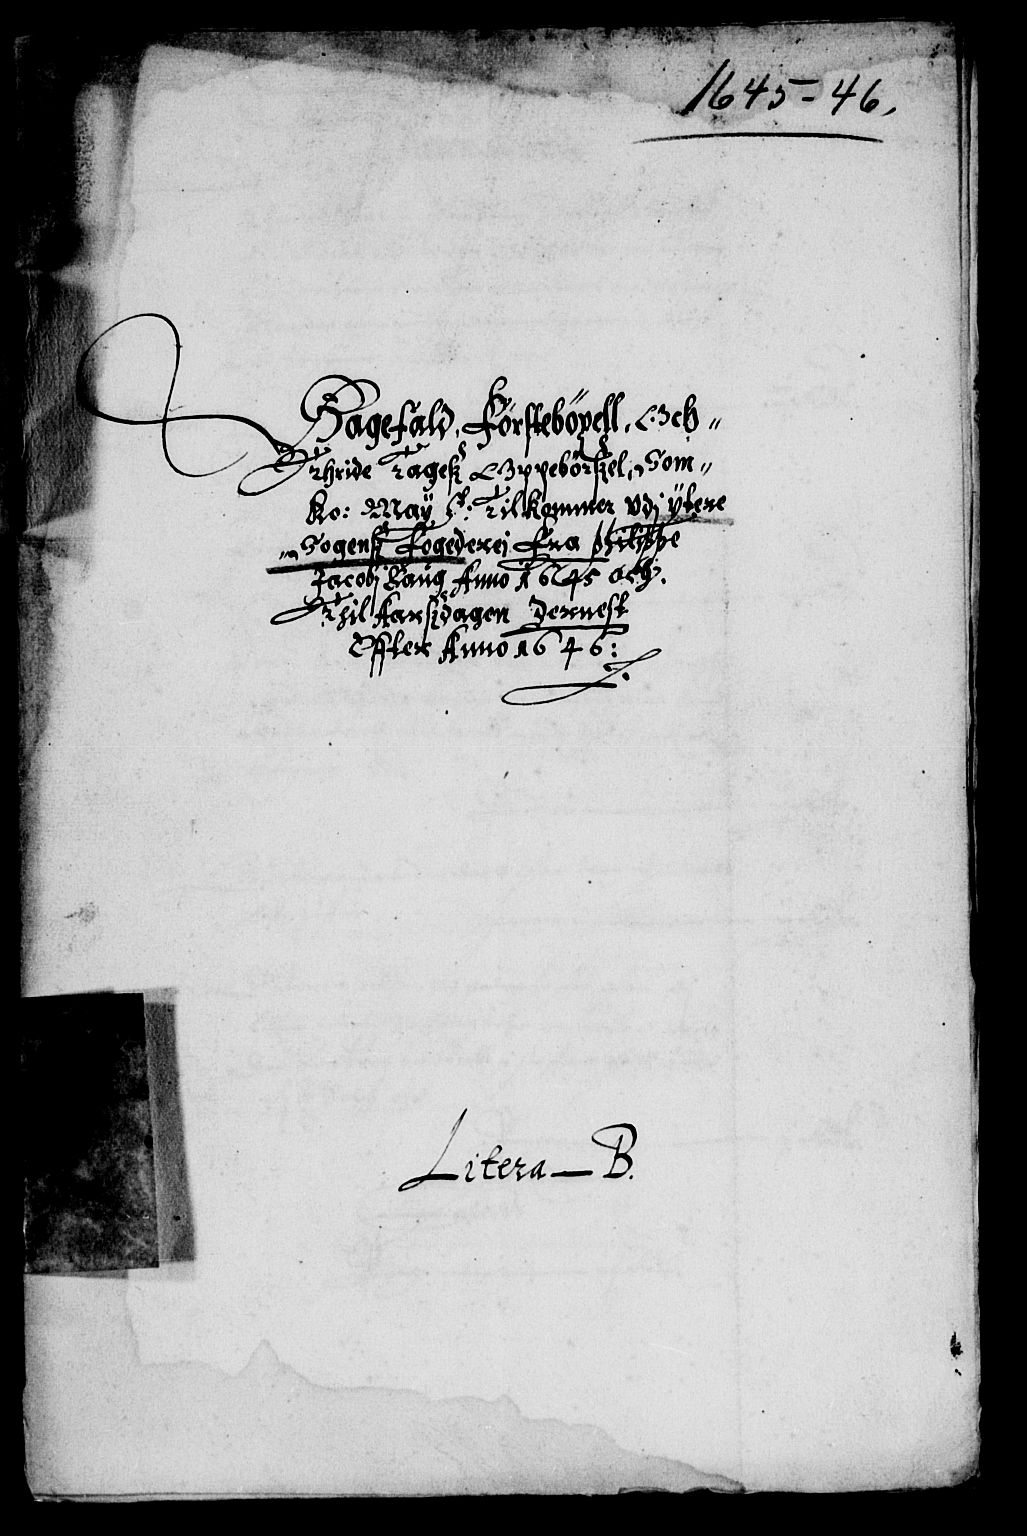 1645-46,
Sagefald, Førstebøxell, Och
Thride Tagesz Oppebørszel, Som
Ko: May tt: Tilkommer vdj ytere
Sogensz Fogederej Fra philippe
Jacobj Daug Anno 1645 och
Thil Aarszdagen dernest
Effter Anno 1646:
Litera B.